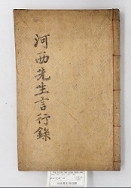 河西先生言行錄